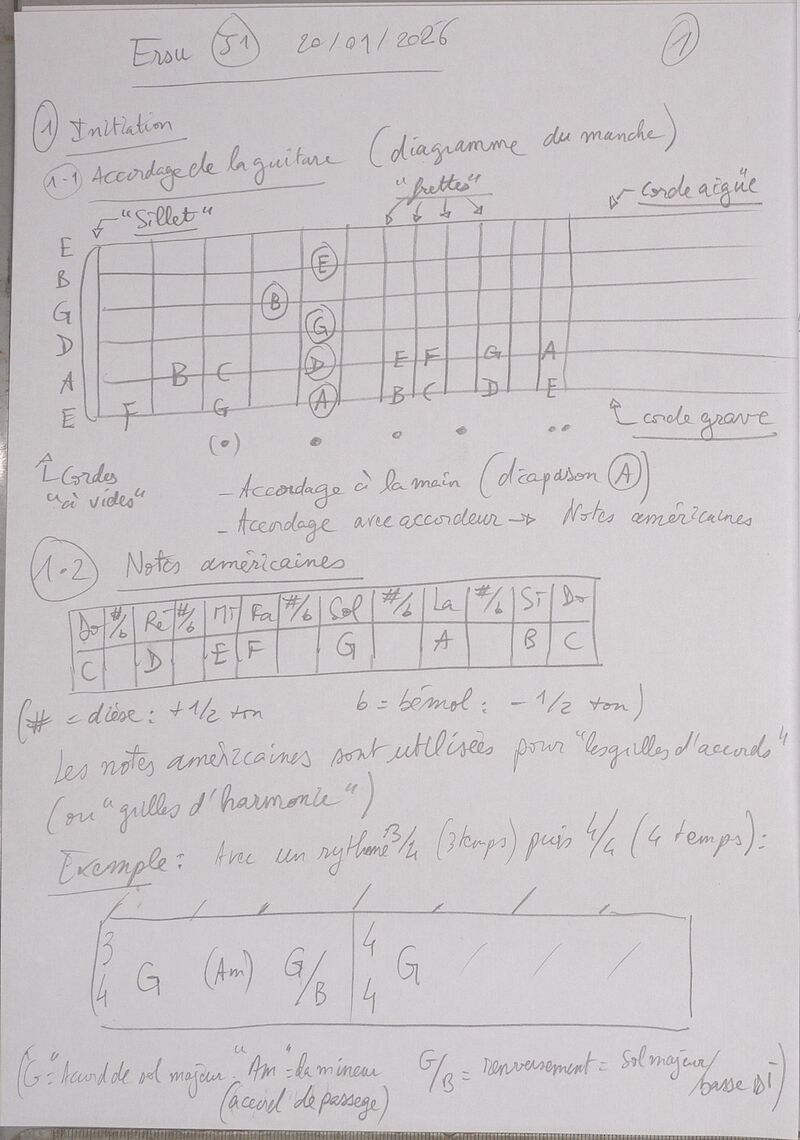 Ersu S1 20/01/2026 1
1 Initiation
1-1 Accordage de la guitare (diagramme du manche)
"Sillet" "frettes" Corde aigüe
E
B E
G B
D G
A B C D E F G A
E F G A B C D E
(•) • • • ••
corde grave
Cordes "à vides"
- Accordage à la main (diapason A)
- Accordage avec accordeur → Notes américaines
1.2 Notes américaines
Do #/b Ré #/b Mi Fa #/b Sol #/b La #/b Si Do
C D E F G A B C
(# = dièse : +1/2 ton b = bémol : -1/2 ton)
Les notes américaines sont utilisées pour "les grilles d'accords"
(ou "grilles d'harmonie")
Exemple : Avec un rythme 3/4 (3 temps) puis 4/4 (4 temps) :
/ / / / / / /
3/4 G (Am) G/B 4/4 G / / /
("G" = Accord de sol majeur. "Am" = La mineur G/B = renversement = Sol majeur/
(accord de passage) basse Si)